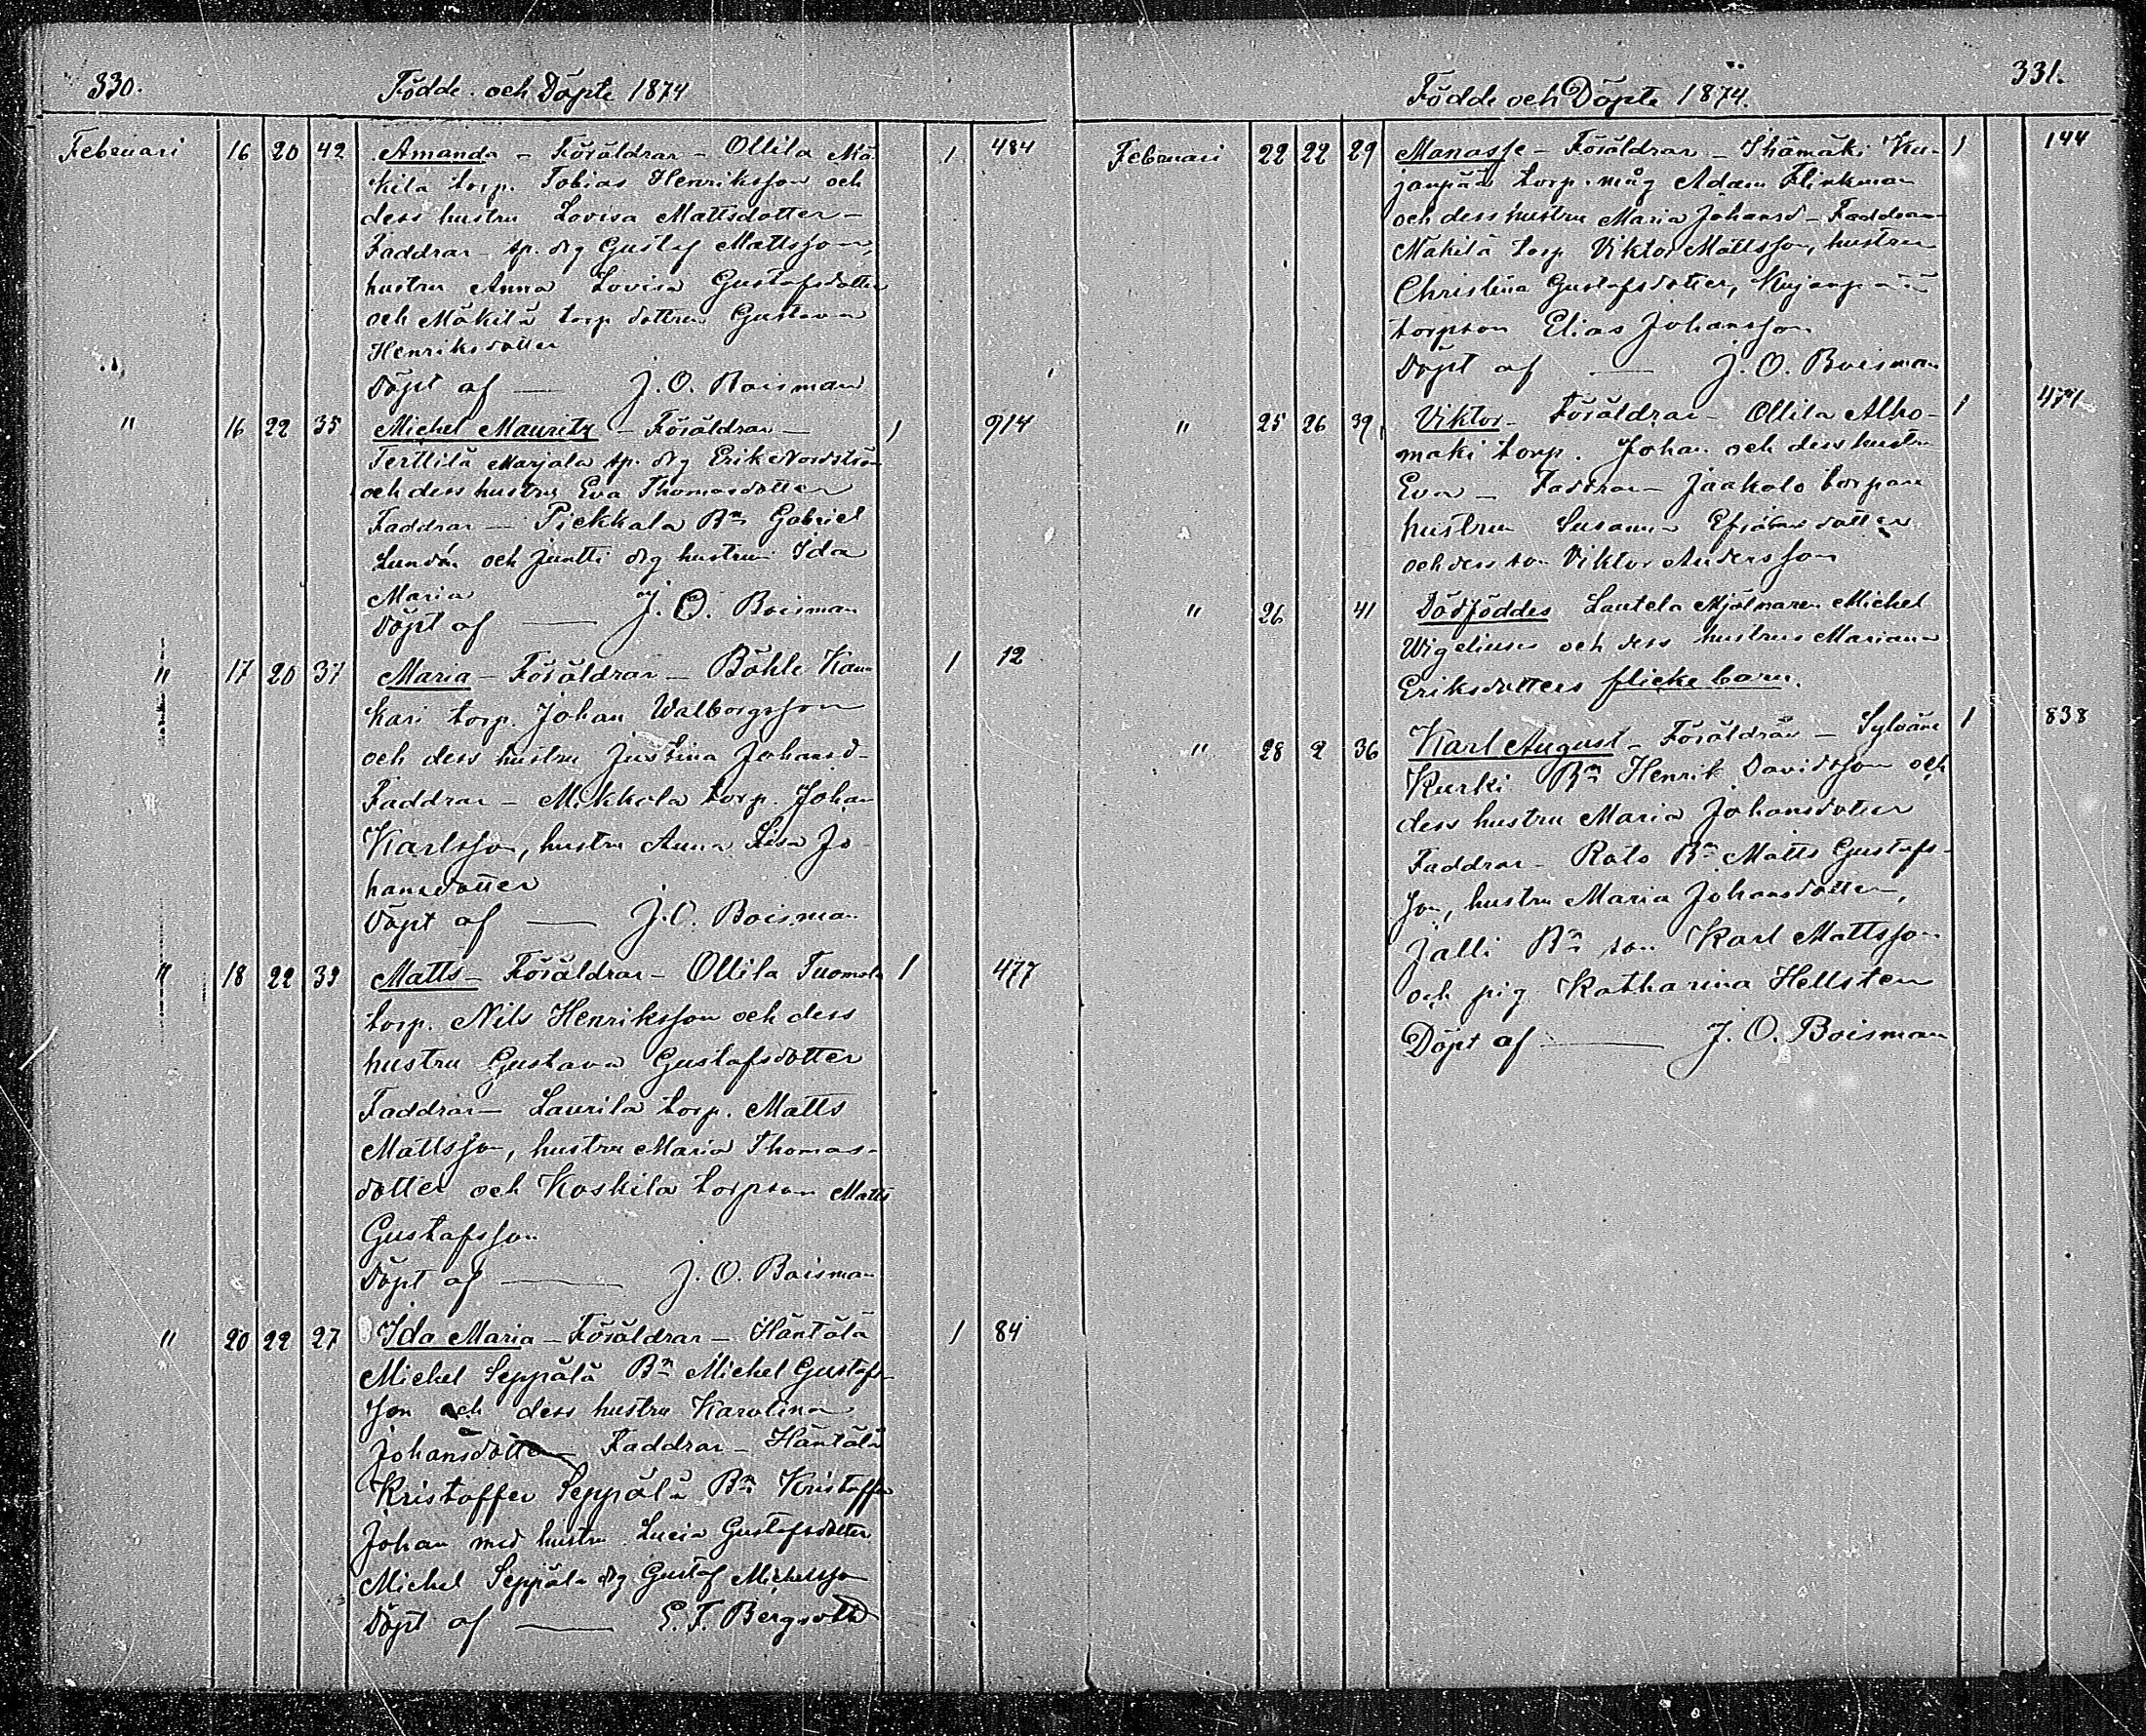 330.
Födde och Döpte 1874
Februari 16 20 42 Amanda - Föräldrar - Ollila Mä 1 484
kila torp. Tobias Henriksson och
dess hustru Lovisa Mattsdotter -
Faddrar - sp. drg Gustaf Mattsson,
hustru Anna Lovisa Gustafsdotter
och Mäkilä torp dottren Gustava
Henriksdotter
Döpt af — J. O. Boisman
" 16 22 35 Michel Mauritz - Föräldrar - 1 914
Terttilä Marjala sp. drg Erik Nordströ
och dess hustru Eva Thomasdotter
Faddrar - Piekkala Bn Gabriel
Lundén och Juntti drg hustrun Ida
Maria
Döpt af — J. O. Boisman
" 17 20 37 Maria - Föräldrar - Böhle Kan 1 12
kari torp. Johan Walborgsson
och dess hustru Justina Johansd-
Faddrar - Mikkola torp. Johan
Karlsson, hustru Anna Lisa Jo
hansdotter
Döpt af — J. O. Boisman
" 18 22 39 Matts - Föräldrar - Ollila Tuomola 1 477
torp. Nils Henriksson och dess
hustru Gustava Gustafsdotter
Faddrar - Laurila torp. Matts
Mattsson, hustru Maria Thomas-
dotter och Koskila torpson Matts
Gustafsson
Döpt af — J. O. Boisman
" 20 22 27 Ida Maria - Föräldrar - Häntälä 1 84
Michel Seppälä Bn Michel Gustafs-
son och dess hustru Karolina
Johansdotter Faddrar - Häntälä
Kristoffer Seppälä Bn Kristoffer
Johan med hustru Lucia Gustafsdotter
Michel Seppälä drg Gustaf Michelsson
Döpt af — E. F. Bergroth
331.
Födde och Döpte 1874.
Februari 22 22 29 Manasse - Föräldrar - Ihämäki Ku- 1 144
janpää torp. måg Adam Flinkman
och dess hustru Maria Johansd - Faddrar -
Mäkilä torp Viktor Mattsson, hustru
Christina Gustafsdotter, Kujanpää
torpson Elias Johansson
Döpt af — J. O. Boisman
" 25 26 39 Viktor - Föräldrar - Ollila Alho- 1
mäki torp. Johan och dess hustru
Eva - Faddrar - Jaakola torpare
hustrun Susanna dotter
och dess son Viktor Andersson
" 26 41 Dödföddes Lautela Mjölnaren Michel
Wigelius och dess hustrus Mariana
Eriksdotters flicke barn.
" 28 2 36 Karl August - Föräldrar - Sylvänä 1 838
Kurki Bn Henrik Davidsson och
dess hustru Maria Johansdotter
Faddrar - Rato Bn Matts Gustafs-
son, hustru Maria Johansdotter,
Jalli Bn son Karl Mattsson
och pig Katharina Hellsten
Döpt af — J. O. Boisman